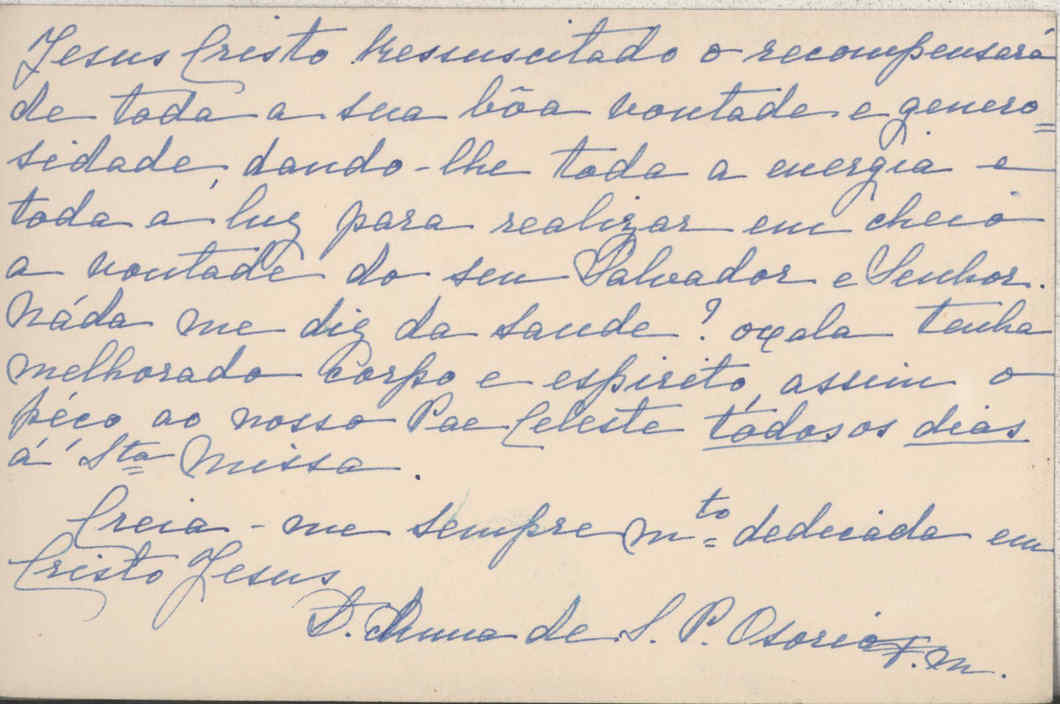 Jesus Cristo Ressuscitado o recompensará
de toda a sua bôa vontade e genero=
sidade, dando-lhe toda a energia e
toda a luz para realizar em cheio
a vontade do seu Salvador e Senhor.
Náda me diz da saude? oxala tenha
melhorado corpo e espirito, assim o
péço ao nosso Pae Celeste tódos os dias
á Sta Missa.
Creia-me sempre mto dedicada em
Cristo Jesus
D. Anna de S. P. Osorio F. M.